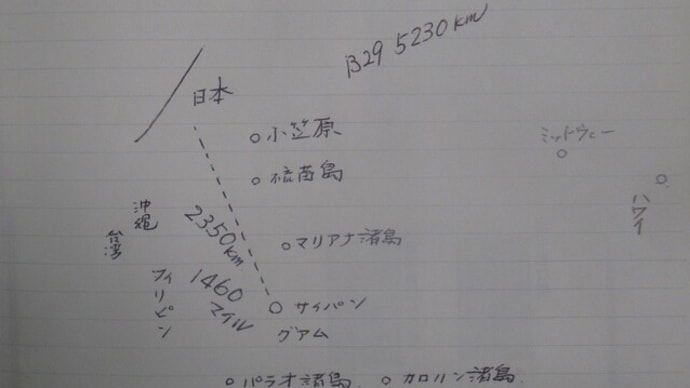 B29 5230km
日本
小笠原
硫黄島
ミットウェー
ハワイ
沖縄
台湾
2350km
マリアナ諸島
フィリピン
1460
マイル
サイパン
グアム
パラオ諸島
カロリン諸島